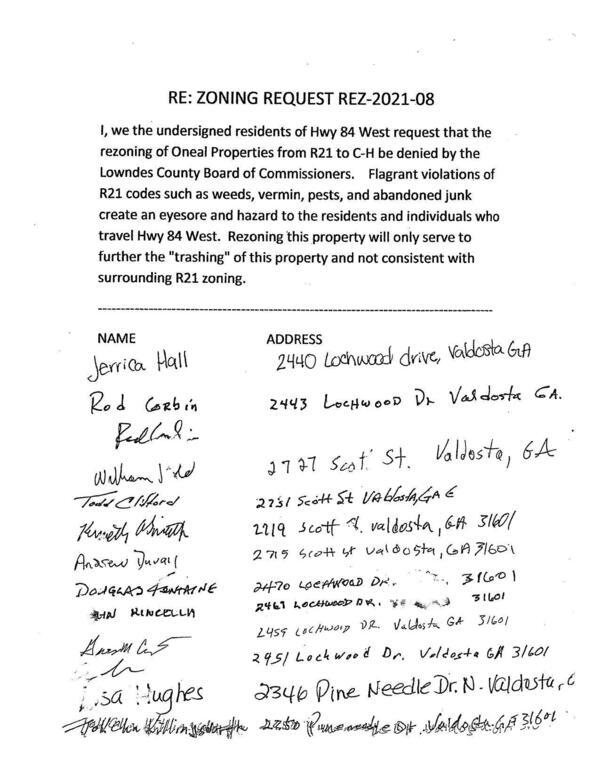 RE: ZONING REQUEST REZ-2021-08
I, we the undersigned residents of Hwy 84 West request that the
rezoning of Oneal Properties from R21 to C-H be denied by the
Lowndes County Board of Commissioners. Flagrant violations of
R21 codes such as weeds, vermin, pests, and abandoned junk
create an eyesore and hazard to the residents and individuals who
travel Hwy 84 West. Rezoning this property will only serve to
further the "trashing" of this property and not consistent with
surrounding R21 zoning.
NAME ADDRESS
Jerrica Hall 2440 Lochwood drive, Valdosta GA
Rod Corbin 2443 LOCHWOOD Dr Valdosta GA.
William 2727 St. Valdosta, GA
Todd Clifford 2731 Scott St Valdosta, GA
Kenneth 2719 Scott St. Valdosta, GA 31601
Andrew Duvall 2715 Scott St Valdosta, GA 31601
DOUGLAS FONTAINE 2470 LOCHWOOD DR. 31601
KINCELLA 2467 LOCHWOOD DR. 31601
2459 LOCHWOOD DR. Valdosta GA 31601
2451 Lochwood Dr. Valdosta GA 31601
Lisa Hughes 2346 Pine Needle Dr. N. Valdosta,
Valdosta GA 31601